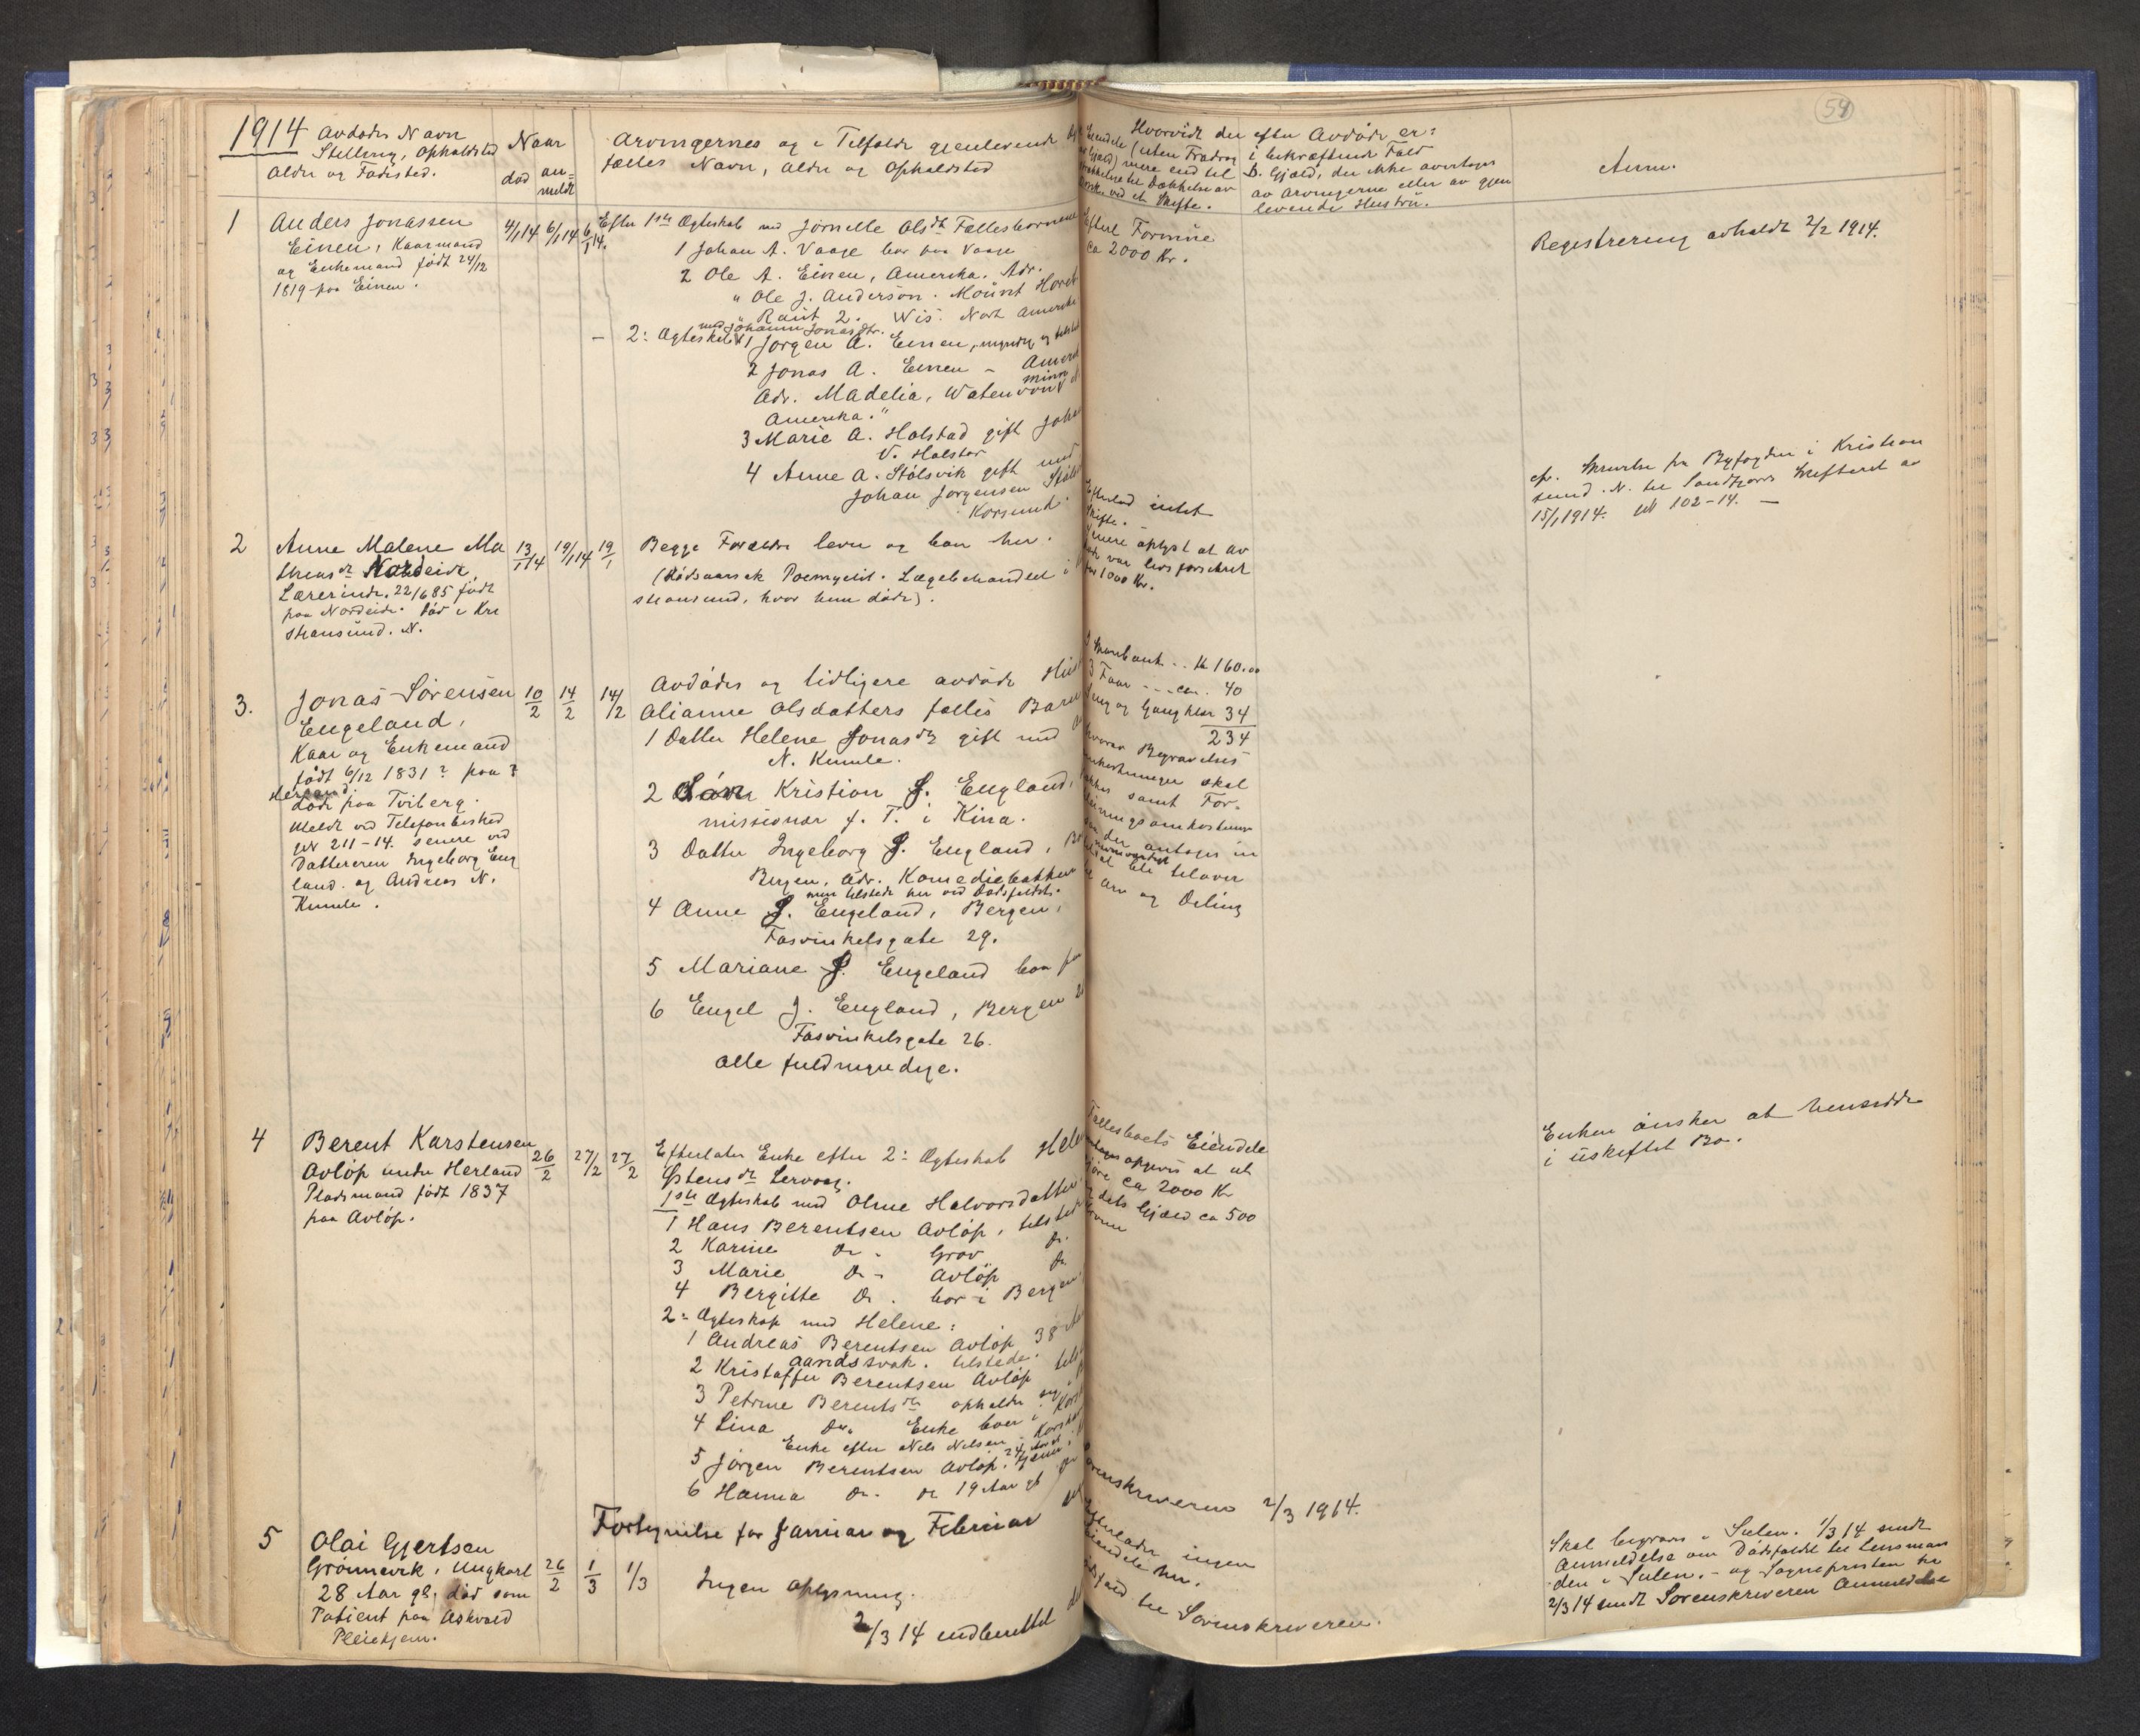 54
1914 Avdødes Navn
Stilling, Opholdsted
Alder og Fødested.
Naar
død an=
meldt
Arvingernes og i Tilfælde gjenlevende
fælles Navn, Alder og Opholdsted
Hvorvidt der efter Avdøde er:
Eiendele (uten Fradrag
Gjæld) mere end til
til Dækkelse av
ved et Skifte.
i bekræftende Fald
D. Gjæld, der ikke overtages
av Arvingerne eller av gjen
levende Hustru.
Anm.
1
Anders Jonassen
Einen, Kaarmand
og Enkemand født 24/12
1819 paa Einen.
4/1 14 6/1 14 6/1 14.
Efter 1ste Ægteskab med Jørnelle Olsdt Fællesbørnene
1 Johan A. Vaage bor paa Vaage
2 Ole A. Einen, Amerika. Adr.
" Ole J. Anderson. Mount Horeb
Raut 2. Wis. Nort Amerika
med Johanne Jonasdtr.
– 2: Ægteskab 1 Jørgen A. Einen, myndig og
2 Jonas A. Einen – Amerik
Minn
Adr. Madelia, Watenvon
Amerika."
3 Marie A. Holstad gift Joha
V. Holstad
4 Anne A. Stølsvik gift med
Johan Jørgensen Støls
Korssund.
Efterl. Formue
ca 2000 Kr.
Registrering avholdt 2/2 1914.
2
Anne Malene Ma
thiasdt Nordeide
Lærerinde. 22/6 85 født
paa Nordeide. Død i Kri
stiansund. N.
13/1 14 19/1 14 19/1
Begge Forældre lever og bor her.
(Dødsaarsak Poemyelit. Lægebehandlet i
stiansund, hvor hun døde).
Efterlod intet
Skifte. –
Senere oplyst at av
døde var livsforsikret
for 1000 Kr.
cfr. Skrivelse fra Byfogden i Kristian
sund. N. til Søndfjords Skifteret av
15/1 1914. 102–14. —
3.
Jonas Sørensen
Engeland,
Kaar og Enkemand
født 6/12 1831? paa?
Herland
døde paa Tviberg.
Meldt ved Telefonbesked
211–14. senere ved
Datteren Ingeborg Eng
land. og Andreas N.
Kumle.
10/2 14/2 14/12
Avdødes og tidligere avdøde Hus
Alianne Olsdatters fælles Barn
1 Datter Helene Jonasdtr gift med
N. Kumle.
2 Søn Kristian J. Engeland,
missionær f. T. i Kina.
3 Datter Ingeborg J. Engeland,
Bergen, Adr. Komediebakken
men tilstede her ved Dødsfaldet.
4 Anne J. Engeland, Bergen,
Fosvinkelsgate 29.
5 Mariane J. Engeland bor
6 Engel J. Engeland, Bergen
Fosvinkelsgate 26.
alle fuldmyndige.
Sparebank .. Kr 160.00
3 Faar - - - ca. 40
Seng og Gangklær 34
234
hvorav Begravelses
omkostninger skal
dækkes samt For-
omkostninger
der antages in
bli tilover
Arv og Deling
4
Berent Karstensen
Avløp under Herland
Pladsmand født 1837
paa Avløp.
26/2 27/2 27/2
Efterlater Enke efter 2: Ægteskab Hele
Østensdt Lervaag.
1ste Ægteskab med Oline Halvorsdatter
1 Hans Berentsen Avløp, tilsted
2 Karine Do. Grov Do.
3 Marie Do - Avløp Do
4 Bergitte Do. bor i Bergen
2: Ægteskap med Helene:
1 Andreas Berentsen Avløp 38
aandssvak. tilstede.
2 Kristoffer Berentsen Avløp
3 Petrine Berentsdtr opholder sig
4 Lina Do. Enke bor i Kors
Enke efter Nels Nelsen
5 Jørgen Berentsen Avløp. 24 Aar
6 Hanna Do. Do 19 Aar gl
Fællesboets Eiendele
opgives at ut
gjøre ca 2000 Kr
dets Gjæld ca 500
Kroner
Enken ønsker at hensidde
i uskiftet Bo.
Fortegnelse for Januar og Februar
Sorenskriveren 2/3 1914.
5
Olai Gjertsen
Grønnevik, Ungkarl
28 Aar gl. død som
Patient paa Askvold
Pleiehjem.
26/2 1/3 1/3
Ingen oplysning.
Efterlader ingen
Eiendele her.
2/3 14 indberettet
til Sorenskriveren.
Skal begraves i Sulen. 1/3 14 sendt
Anmeldelse om Dødsfaldet til Lensman
den i Sulen. – og Sogneprésten
2/3 14 sendt Sorenskriveren Anmeldelse